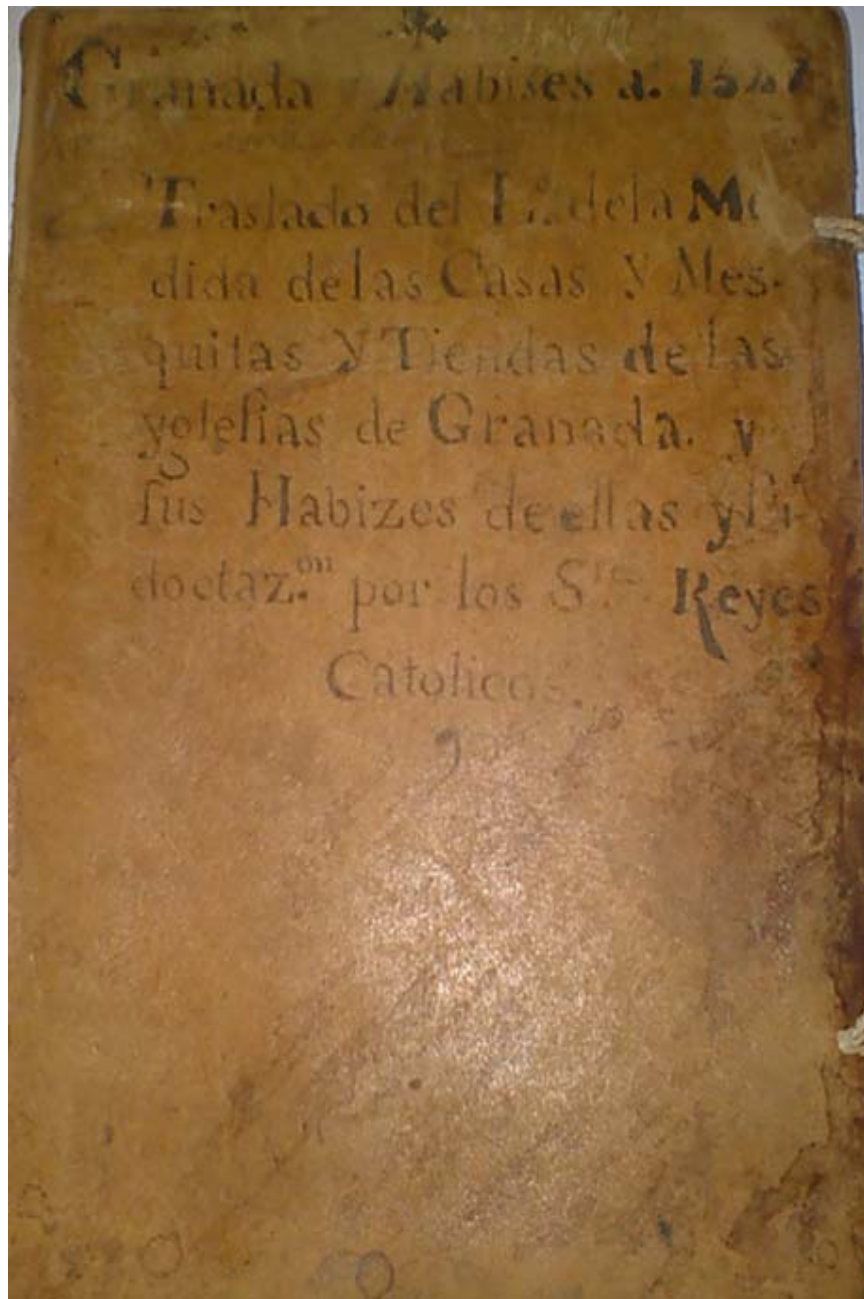 Granada Habises a.º 1527
Traslado del L.º dela Me
dida delas Casas y Mes-
quitas y Tiendas de las
yglesias de Granada. y
sus Habizes de ellas y
doctaz.on por los S.res Reyes
Catolicos.